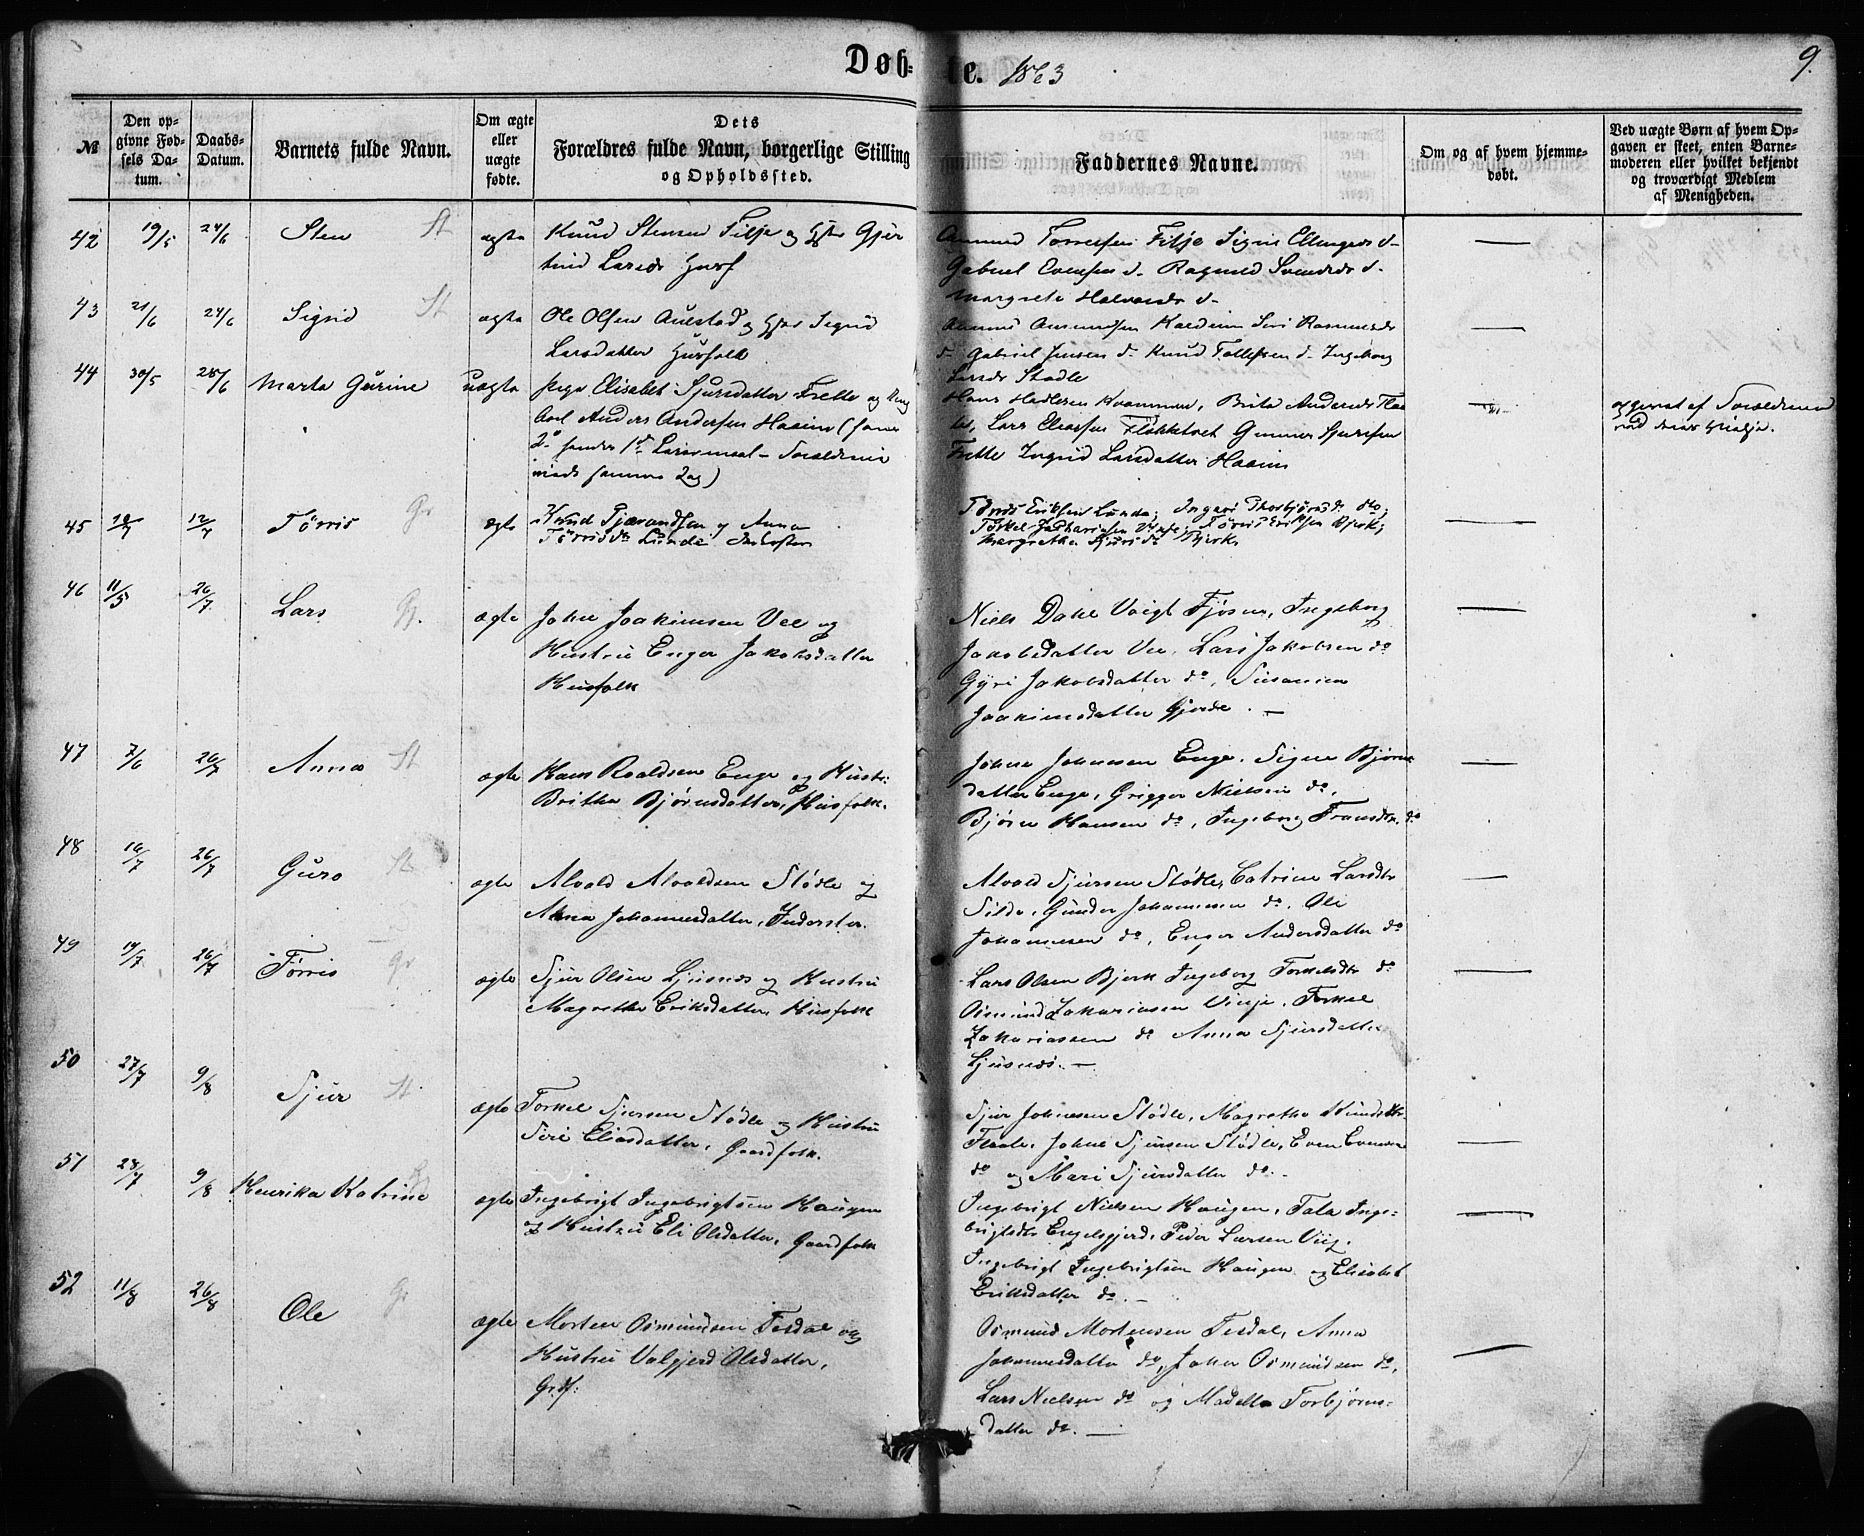 Døb= te. 1863 9.
№
Den op=
givne Fød=
sels Da=
tum.
Daabs=
Datum.
Barnets fulde Navn.
Om ægte
eller
uægte
fødte.
Dets
Forældres fulde Navn, borgerlige Stilling
og Opholdssted.
Faddernes Navne.
Om og af hvem hjemme=
døbt.
Ved uægte Børn af hvem Op=
gaven er skeet, enten Barne=
moderen eller hvilket bekjendt
og troværdigt Medlem
af Menigheden.
42 19/5 24/6 Sten St ægte Knud Stensen Silje og Hstr Gjer
trud Larsdr Husf
Amund Torressen Filje Signi Ellingsdr d-
Gabriel Evensen d- Ragnild Svendsdr d-
Margrete Halvorsdr d-
43 21/6 24/6 Sigrid St ægte Ole Olsen Aulstad og Hstr Sigrid
Larsdatter Husfolk
Amund Amundsen Kaldeim Siri Rasmusdr
d- Gabriel Jensen d- Knud Tollefsen d- Ingeborg
Larsdr Stødle
44 30/5 28/6 Marta Gurine uægte Pige Elisabet Sjursdatter Frette og Ung
karl Anders Andersen Haaim (hans
2- hendes 1ste Leiermaal - Forældrene
viede samme Dag)
Hans Hadlesen Kvammen, Brita Andersdr
Lars Eliassen Fløkketvet Gunnar Sjursen
Frette Ingrid Larsdatter Haaim
opgivet af Forældrene
ved deres Vielse.
45 12/7 Tørris Gr ægte Knud Tjærandsen og Anna
Tørrisdr Lunde Inderster
Tørris Eriksen Lunde; Ingeri Thorbjørnsdr do;
Torkel Zachariasen Vinje; Tørris Eriksen Bjerk;
Margrethe Sjursdr Bjerk.
46 11/5 26/7 Lars Gr. ægte Johan Joakimsen Vee og
Hustru Enger Jakobsdatter
Husfolk
Niels Dahl Voigt Fjøsne, Ingeborg
Jakobsdatter Vee, Lars Jakobsen do
Gyri Jakobsdatter do, Susanna
Joakimsdatter Gjerde. —
47 7/6 26/7 Anna St ægte Hans Roaldsen Enge og Hustr:
Britha Bjørnsdatter, Husfolk.
Johan Johansen Enge. Signe Bjørns
datter Enge, Grigger Nielsen do,
Bjørn Hansen do, Ingeborg Fransdtr. do
48 16/7 26/7 Guro St ægte Alvald Alvaldsen Stødle og
Anna Johannesdatter, Inderster.
Alvald Sjursen Stødle, Catrine Larsdtr
Silde, Gunder Johannesen do, Ole
Johannesen do, Enger Andersdatter do
49 19/7 26/7 Tørris Gr ægte Sjur Olsen Ljusnes og Hustru
Magrethe Eriksdatter, Husfolk
Lars Olsen Bjerk Ingeborg Torkelsdtr do
Osmund Zakariasen Vinje, Torkel
Zakariassen do Anna Sjursdatter
Ljusnes. —
50 27/7 9/8 Sjur St. ægte Torkel Sjursen Stødle og Hustru
Siri Eliasdatter, Gaardfolk.
Sjur Johnesen Stødle, Magrethe Knudsdtr
Johne Sjursen Stødle, Even Evensen
do og Mari Sjursdatter do.
51 28/7 9/8 Henrika Katrine ægte Ingebrigt Ingebrigtsen Haugen
og Hustru Eli Olsdatter, Gaardfolk
Ingebrigt Nielsen Haugen, Tala Inge=
brigtsdtr Engelsgjerd, Peder Larsen Viig,
Ingebrigt Ingebrigtsen Haugen og Elisabet
Eriksdatter do. —
52 11/8 26/8 Ole Gr ægte Morten Osmundsen Tesdal og
Hustru Valgjerd Olsdatter,
Grdf:
Osmund Mortensen Tesdal, Anna
Johannesdatter do, Johan Osmundsen do,
Lars Nielsen do og Madella Torbjørns=
datter do. —